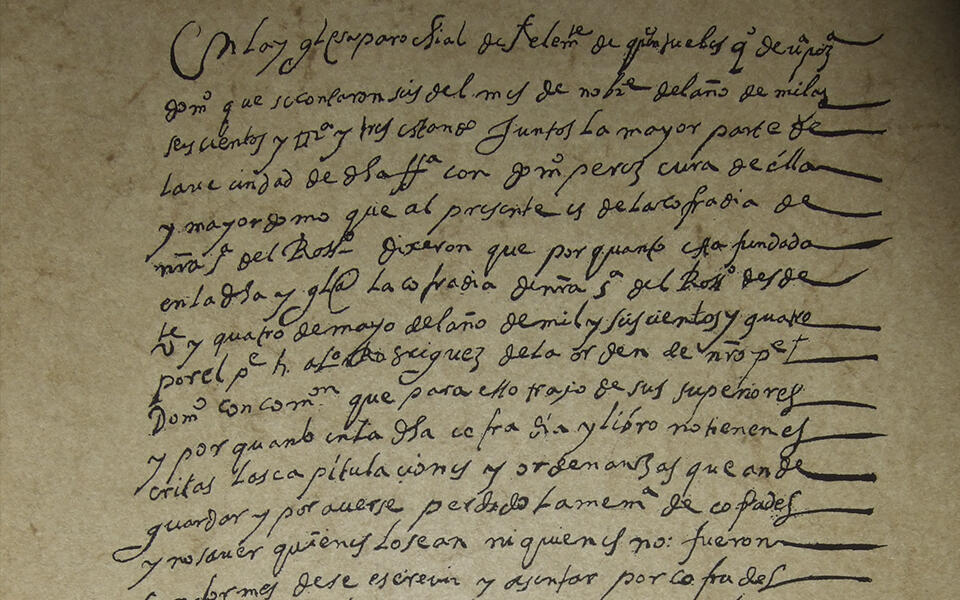 En la yglesia parochial de S. Clemte de
domo que se contaron seis del mes de nobre del año de mil y
seyscientos y y tres estando Juntos la mayor parte de
la vecindad de dha con domo perez cura de ella
y mayordomo que al presente es de la cofradia de
nra Sa del Rosro dixeron que por quanto esta fundada
en la dha yglia la cofradia de nra Sa del Rosro desde
te y quatro de mayo del año de mil y seiscientos y quatro
por el pe Rodriguez de la orden de nro pe
Domo con comon que para ello trajo de sus superiores
y por quanto en la dha cofradia y libro no tienen es
critas las capitulaciones y ordenanzas que an de
guardar y por averse perdido la mema de cofrades
y no saver quienes lo sean ni quienes no: fueron
conformes de se escrevir y asentar por cofrades